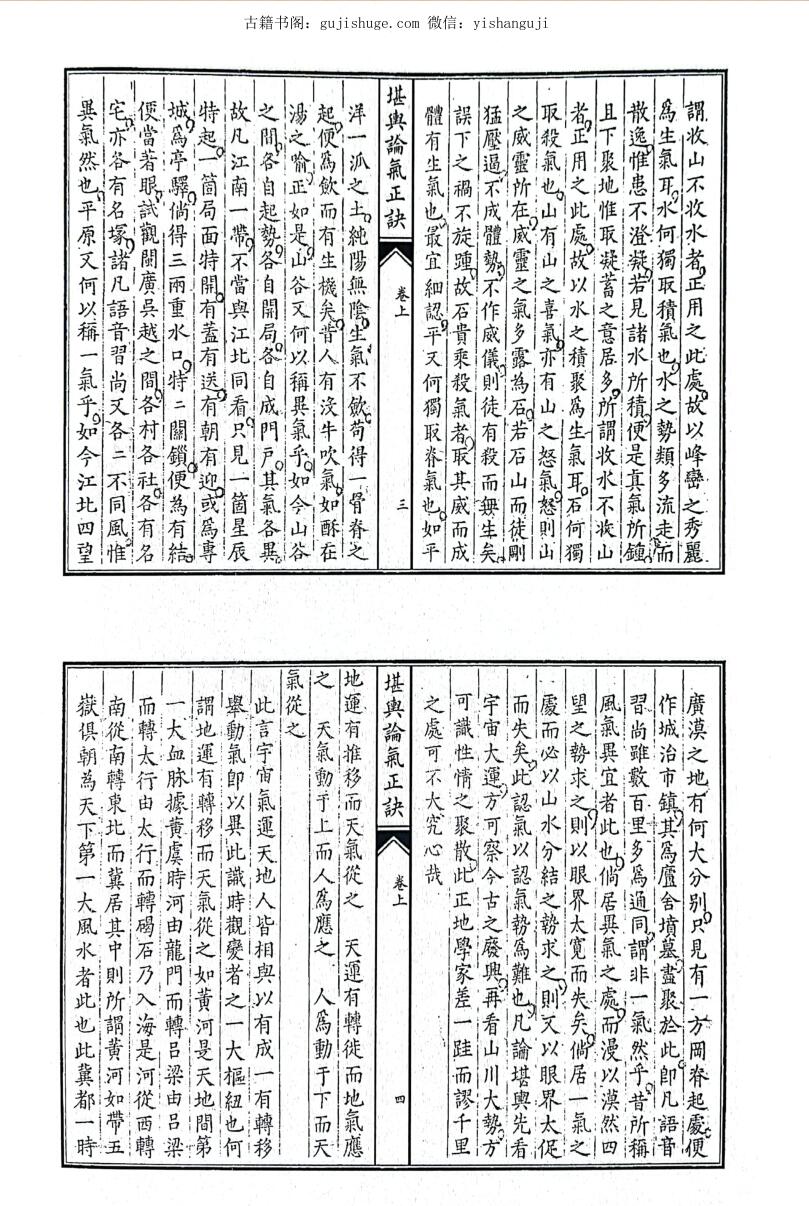 古籍书阁：gujishuge.com 微信：yishanguji
謂收山不收水者正用之此處故以峰巒之秀麗
爲生氣耳水何獨取積氣也水之勢類多流走而
散逸惟患不澄凝若見諸水所積便是真氣所鍾
且下聚地惟取凝蓄之意居多所謂收水不收山
者正用之此處故以水之積聚爲生氣耳石何獨
取殺氣也山有山之喜氣亦有山之怒氣怒則山
之威靈所在威靈之氣多露為石若石山而徒剛
猛壓逼不成體勢不作威儀則徒有殺而無生矣
誤下之禍不旋踵故石貴乘殺氣者取其威而成
體有生氣也最宜細認平又何獨取脊氣也如平
堪輿論氣正訣
卷上
三
洋一派之土純陽無陰生氣不歛苟得一骨脊之
起便爲歛而有生機矣昔人有沒牛吹氣如酥在
湯之喻正如是山谷又何以稱異氣乎如今山谷
之間各自起勢各自開局各自成門戸其氣各異
故凡江南一帶不當與江北同看只見一箇星辰
特起一箇局面特開有蓋有送有朝有迎或爲專
城爲亭驛倘得三兩重水口特二關鎖便為有結
便當著眼試觀閩廣吳越之間各村各社各有名
宅亦各有名塚諸凡語音習尚又各二不同風惟
異氣然也平原又何以稱一氣乎如今江北四望
廣漠之地有何大分別只見有一方岡脊起處便
作城治市鎮其爲廬舍墳墓盡聚於此即凡語音
習尚雖數百里多為通同謂非一氣然乎昔所稱
風氣異宜者此也倘居異氣之處而漫以漠然四
望之勢求之則以眼界太寬而失矣倘居一氣之
處而必以山水分結之勢求之則又以眼界太促
而失矣此認氣以認氣勢爲難也凡論堪輿先看
宇宙大運方可察今古之廢興再看山川大勢方
可識性情之聚散此正地學家差一跬而謬千里
之處可不大究心哉
堪輿論氣正訣
卷上
四
地運有推移而天氣從之 天運有轉徙而地氣應
之 天氣動于上而人爲應之 人爲動于下而天
氣從之
此言宇宙氣運天地人皆相與以有成一有轉移
舉動氣即以異此識時觀變者之一大樞紐也何
謂地運有轉移而天氣從之如黄河是天地間第
一大血脉據黄虞時河由龍門而轉呂梁由呂梁
而轉太行由太行而轉碣石乃入海是河從西轉
南從南轉東北而冀居其中則所謂黄河如帶五
嶽俱朝為天下第一大風水者此也此冀都一時